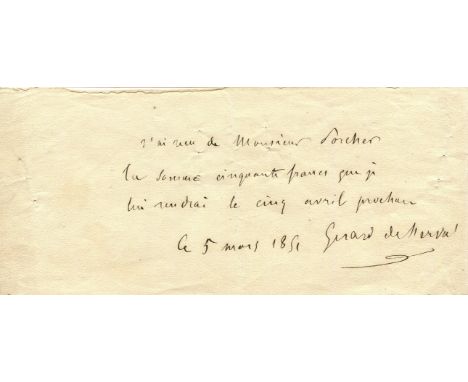 J'ai reçu de Monsieur Porcher
la somme cinquante francs que je
lui rendrai le cinq avril prochain
Ce 5 mars 1851 Gérard de Nerval